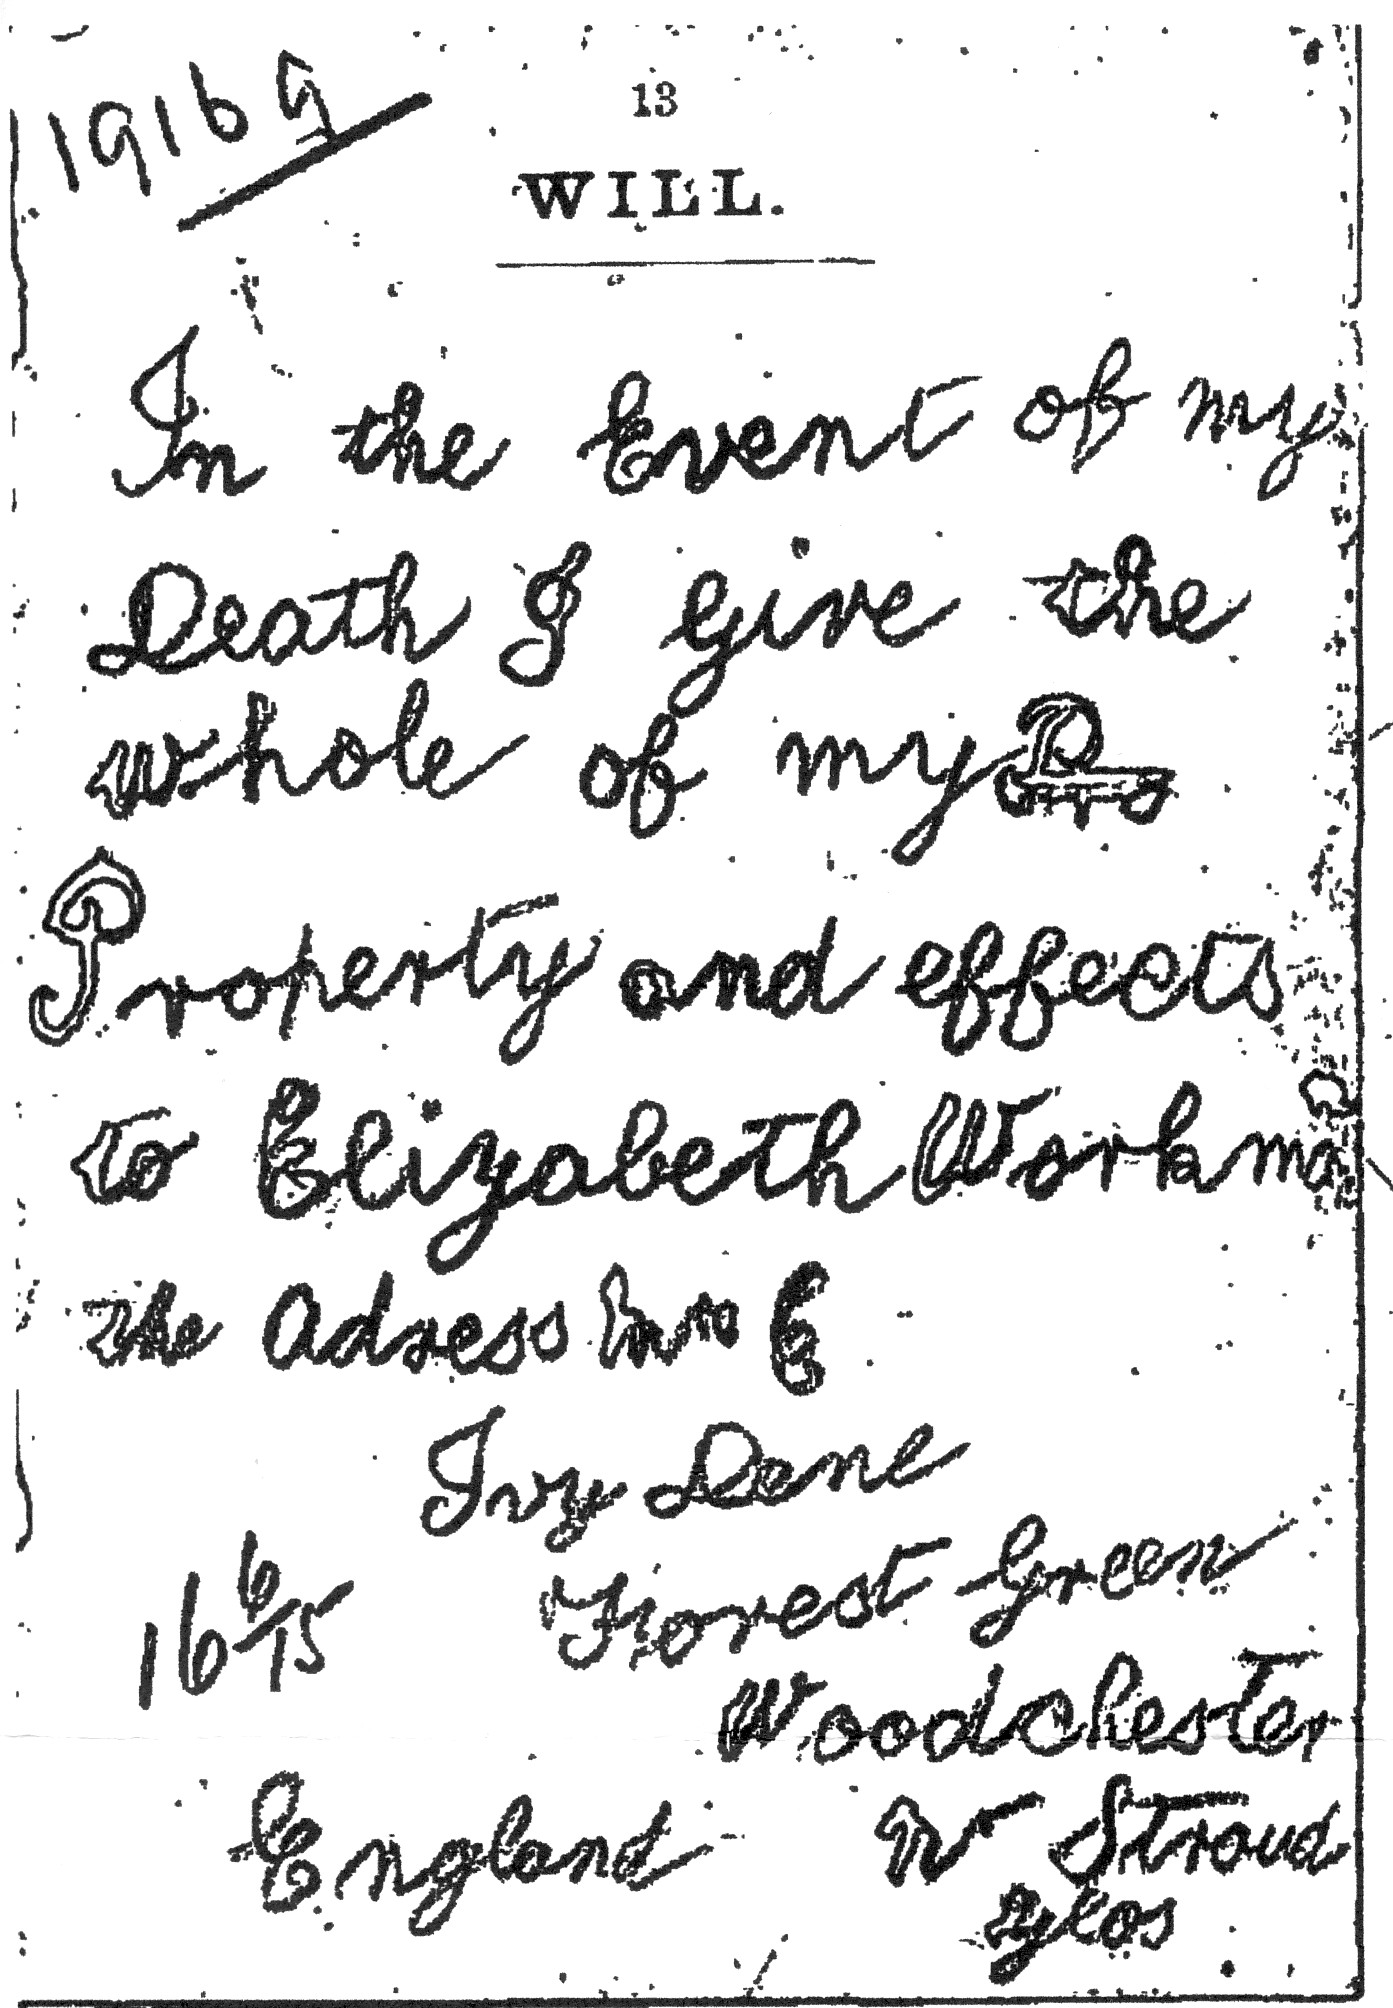 19169
13
WILL.
In the Event of my
Death I Give the
whole of my Pro
Property and effects
to Elizabeth Workman
the Adress Mrs E
Ivy Dene
16 6/15 Forest Green
Woodchester
England Nr Stroud
Glos